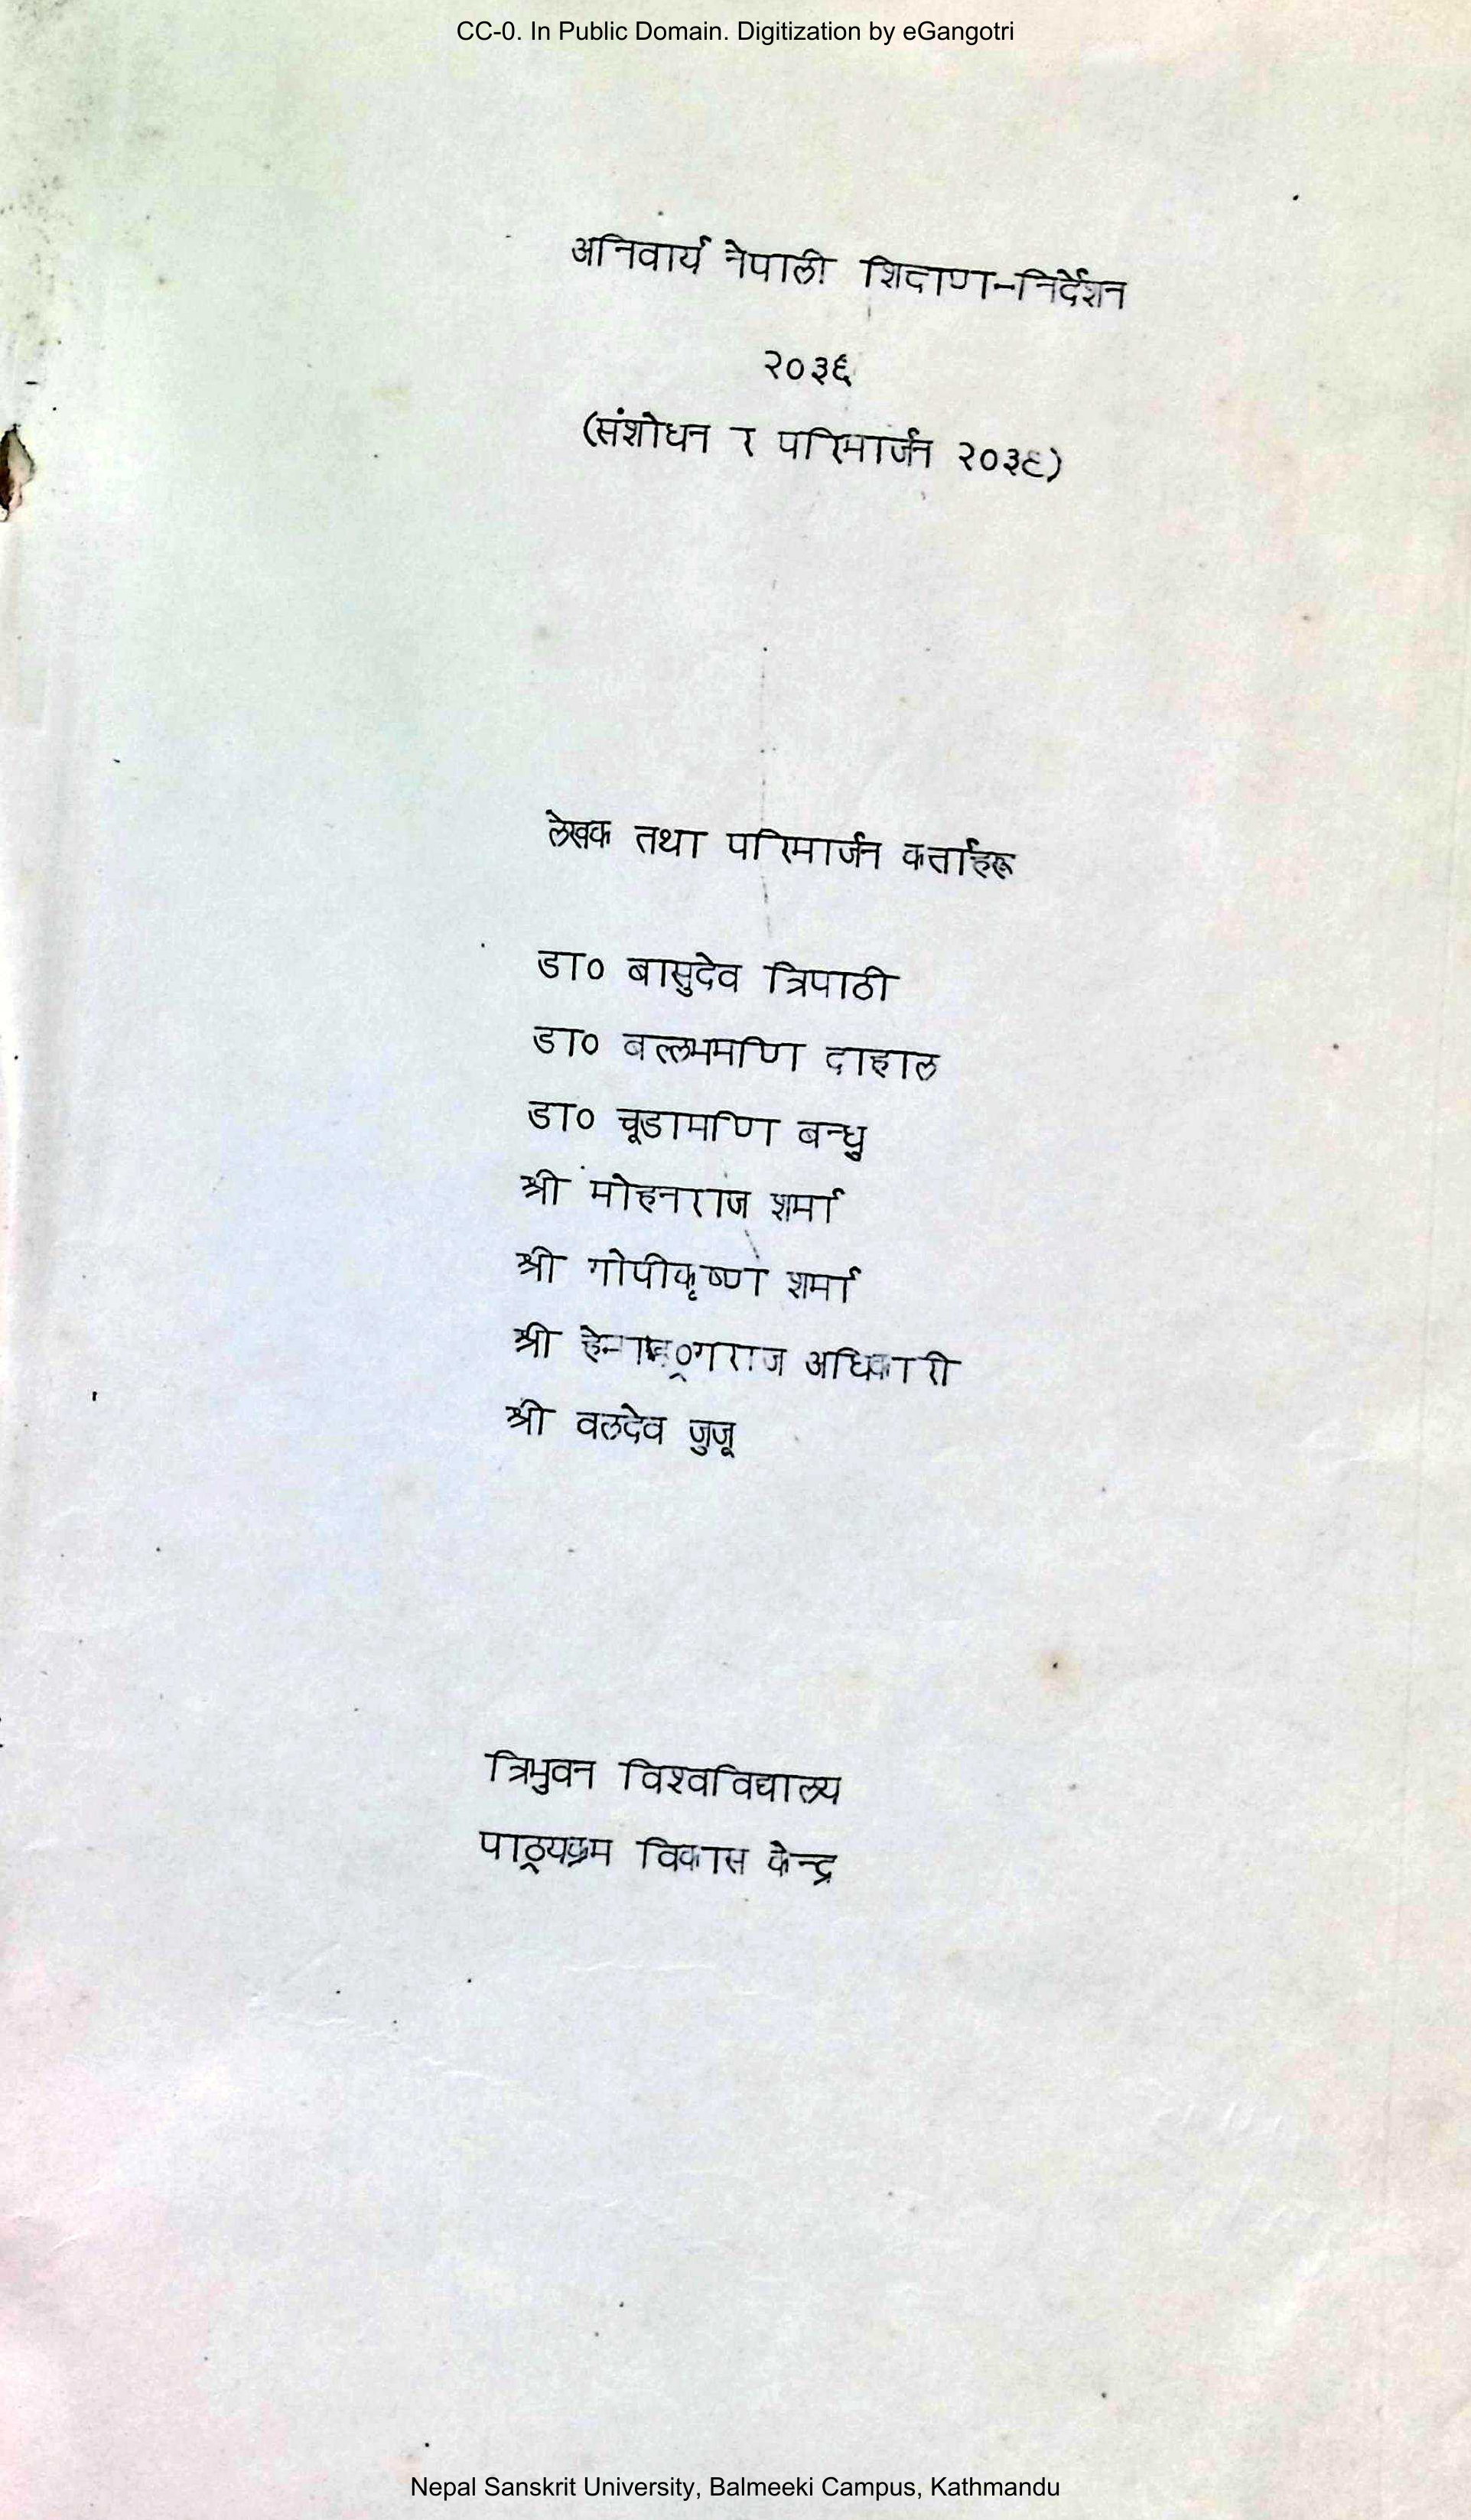 CC-0. In Public Domain. Digitization by eGangotri
अनिवार्य नेपाली शिक्षण-निर्देशन
२०३६
(संशोधन र परिमार्जन २०३९)
लेखक तथा परिमार्जन कर्त्ताहरू
डा० बासुदेव त्रिपाठी
डा० बल्लभमणि दाहाल
डा० चूडामणि बन्धु
श्री मोहनराज शर्मा
श्री गोपीकृष्ण शर्मा
श्री अधिकारी
श्री वलदेव जुजू
त्रिभुवन विश्वविद्यालय
पाठ्यक्रम विकास केन्द्र
Nepal Sanskrit University, Balmeeki Campus, Kathmandu